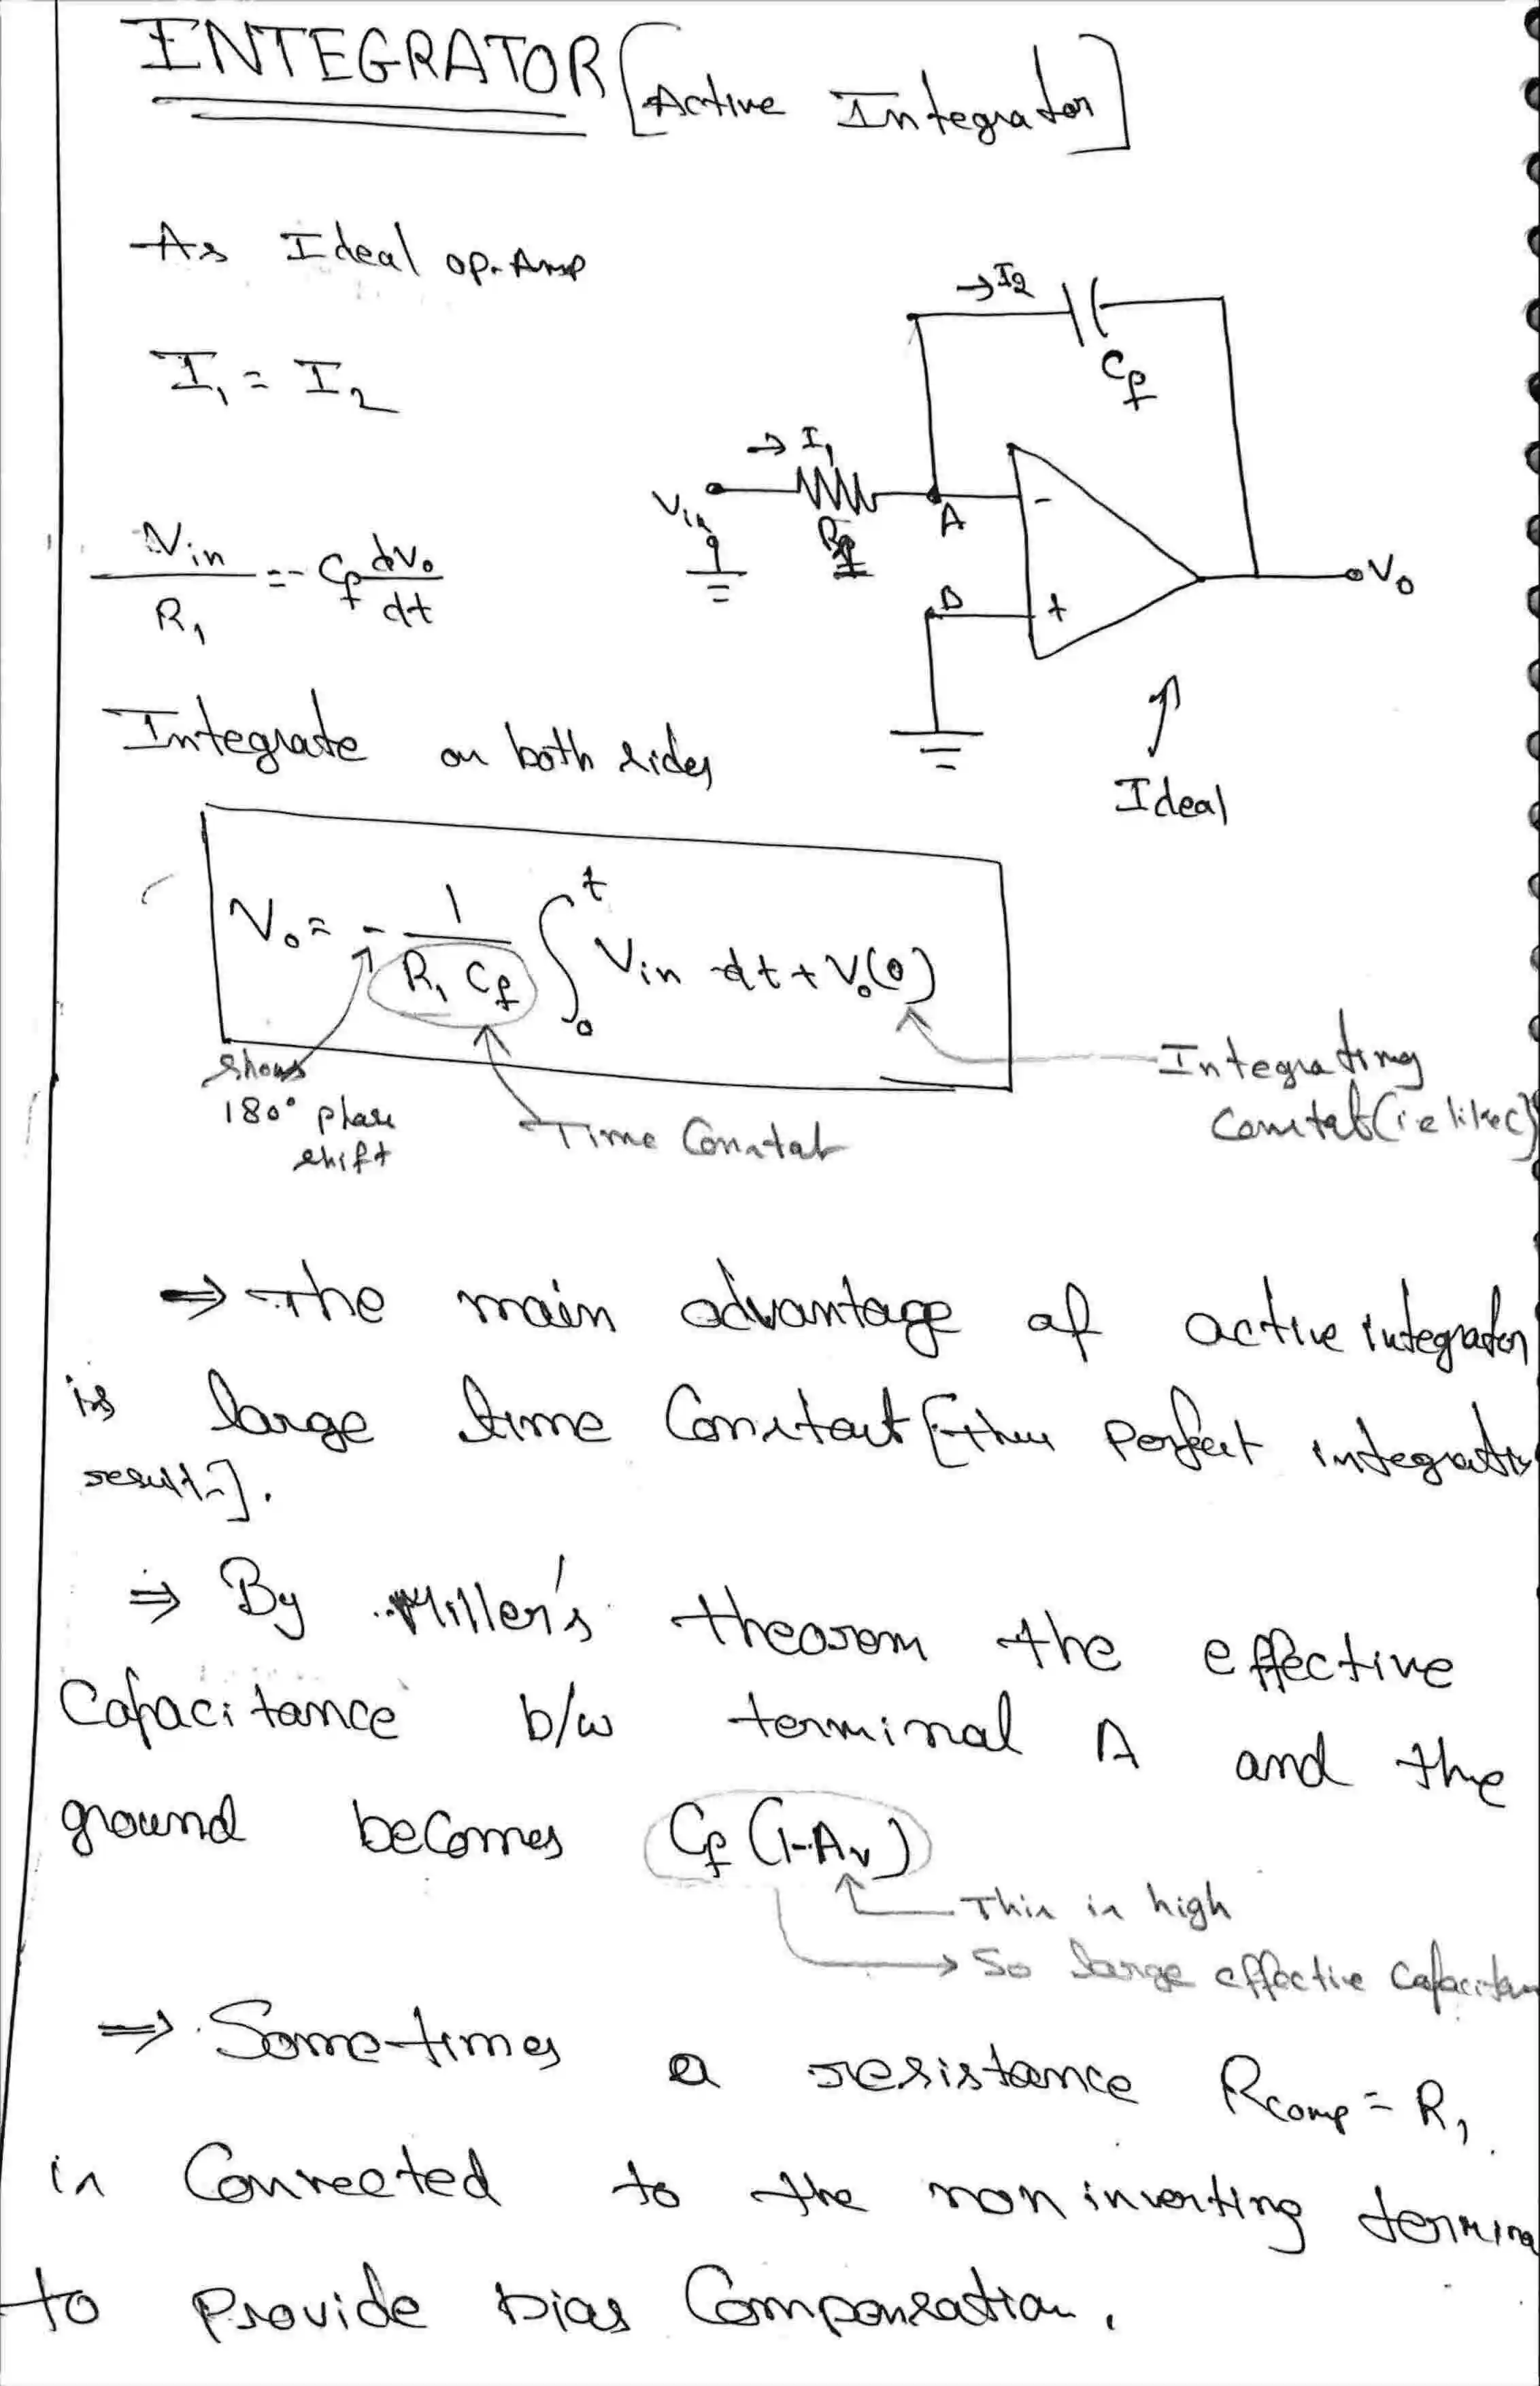 INTEGRATOR [Active Integrator]
As Ideal op-Amp
I₁ = I₂
→I₂
Cf
→ I₁
Vin
R₁
A
-
B
+
Vo
Ideal
Vin/R₁ = - Cf dVo/dt
Integrate on both sides
Vo = - 1/(R₁ Cf) ∫₀ᵗ Vin dt + Vo(0)
shows
180° phase
shift
Time Constat
Integrating
Constat (i.e like C)
⇒ The main advantage of active integrator
is large time Constant [thus perfect
results].
⇒ By Miller's theorem the effective
Capacitance b/w terminal A and the
ground becomes Cf (1-Av)
This is high
So large effective
⇒ Sometimes a resistance Rcomp = R₁
is Connected to the non inverting
to Provide bias Compensation.